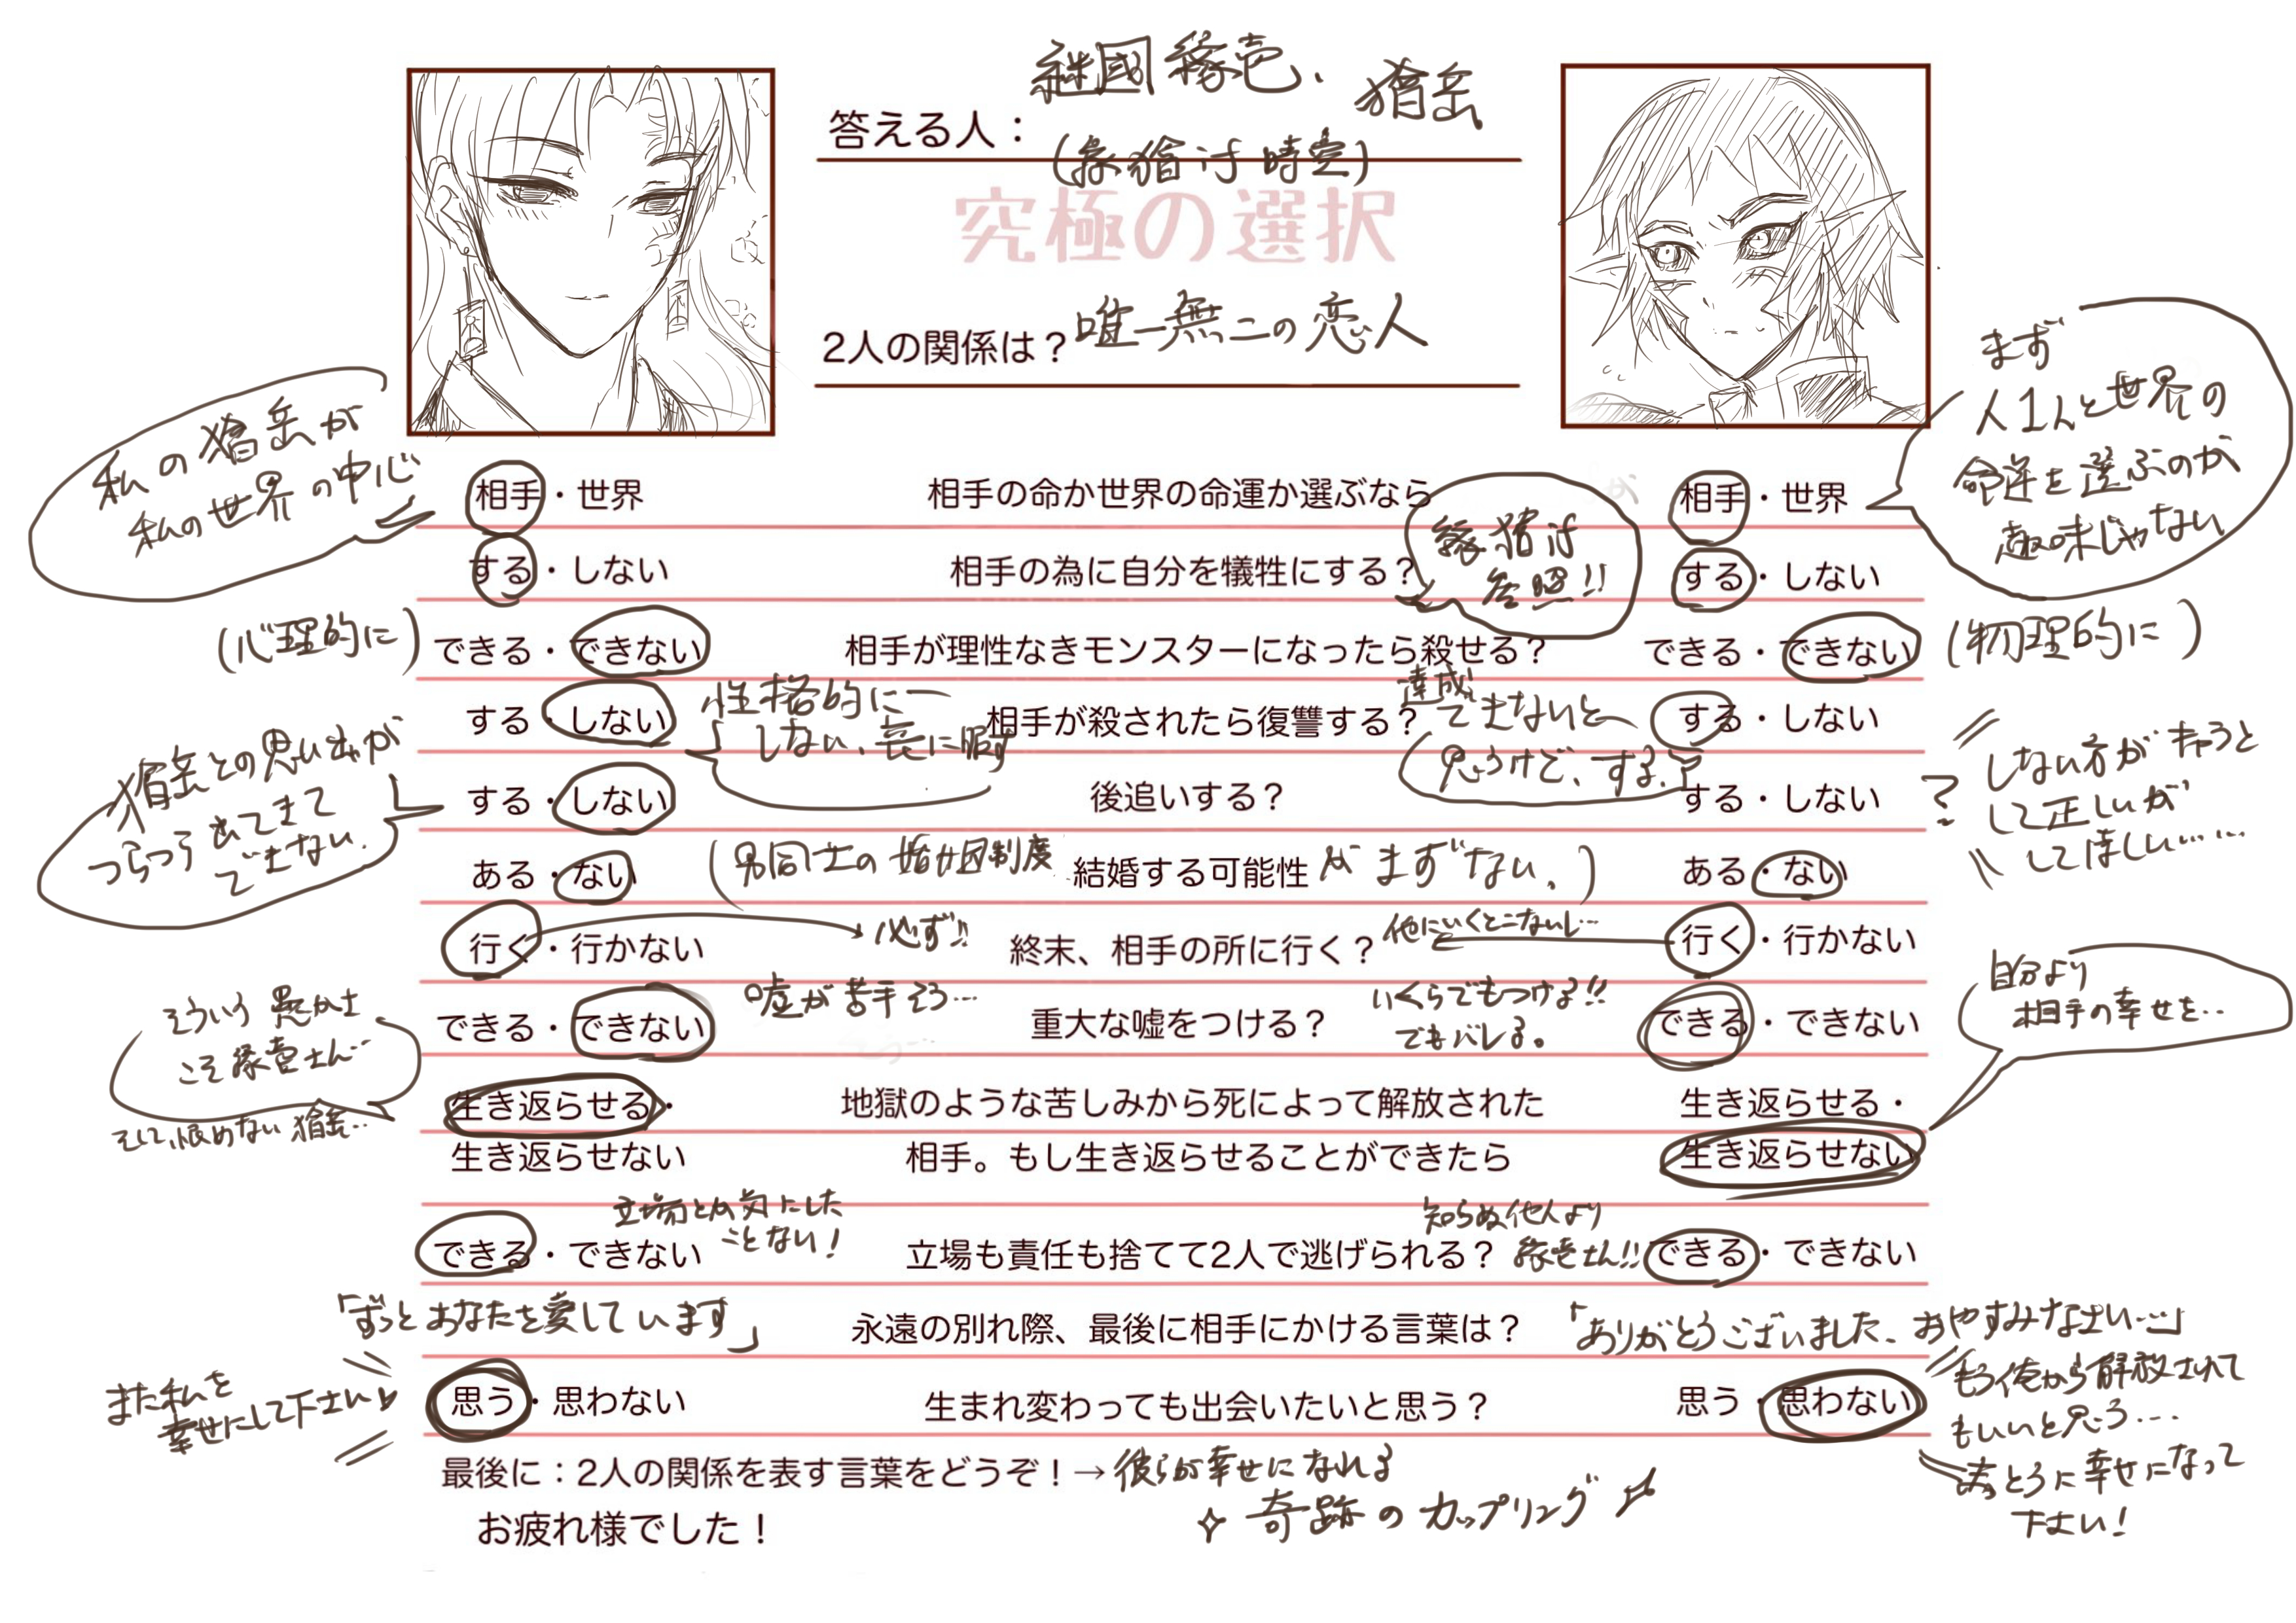 継國縁壱、獪岳
答える人：
(縁獪if時空)
究極の選択
2人の関係は？ 唯一無二の恋人
私の獪岳が
私の世界の中心
まず
人1人と世界の
命運を選ぶのが
趣味じゃない
相手・世界 相手の命か世界の命運か選ぶなら 相手・世界
する・しない 相手の為に自分を犠牲にする？ する・しない
縁獪if
参照!!
(心理的に) できる・できない 相手が理性なきモンスターになったら殺せる？ できる・できない (物理的に)
する・しない 相手が殺されたら復讐する？ する・しない
性格的に
しない、喪に服す
達成
できないと
思うけど、する。
獪岳との思い出が
つらつら出てきて
できない。
する・しない 後追いする？ する・しない
?
しない方がきっと
して正しいが
してほしい……
ある・ない (男同士の婚姻制度 結婚する可能性 がまずない。) ある・ない
行く・行かない 必ず!! 終末、相手の所に行く？ 他にいくとこないし… 行く・行かない
できる・できない 嘘が苦手そう… 重大な嘘をつける？ いくらでもつける!! できる・できない
でもバレる。
そういう愚かさ
こそ縁壱さん…
そして、恨めない獪岳…
自分より
相手の幸せを…
生き返らせる・ 地獄のような苦しみから死によって解放された 生き返らせる・
生き返らせない 相手。もし生き返らせることができたら 生き返らせない
立場とか気にした
ことない!
知らぬ他人より
縁壱さん!!
できる・できない 立場も責任も捨てて2人で逃げられる？ できる・できない
「ずっとあなたを愛しています」 永遠の別れ際、最後に相手にかける言葉は？ 「ありがとうございました、おやすみなさい…」
また私を
幸せにして下さい♥
思う・思わない 生まれ変わっても出会いたいと思う？ 思う・思わない
もう俺から解放されて
もいいと思う…
幸せになって
下さい!
最後に：2人の関係を表す言葉をどうぞ！→ 彼らが幸せになれる
奇跡のカップリング
お疲れ様でした！